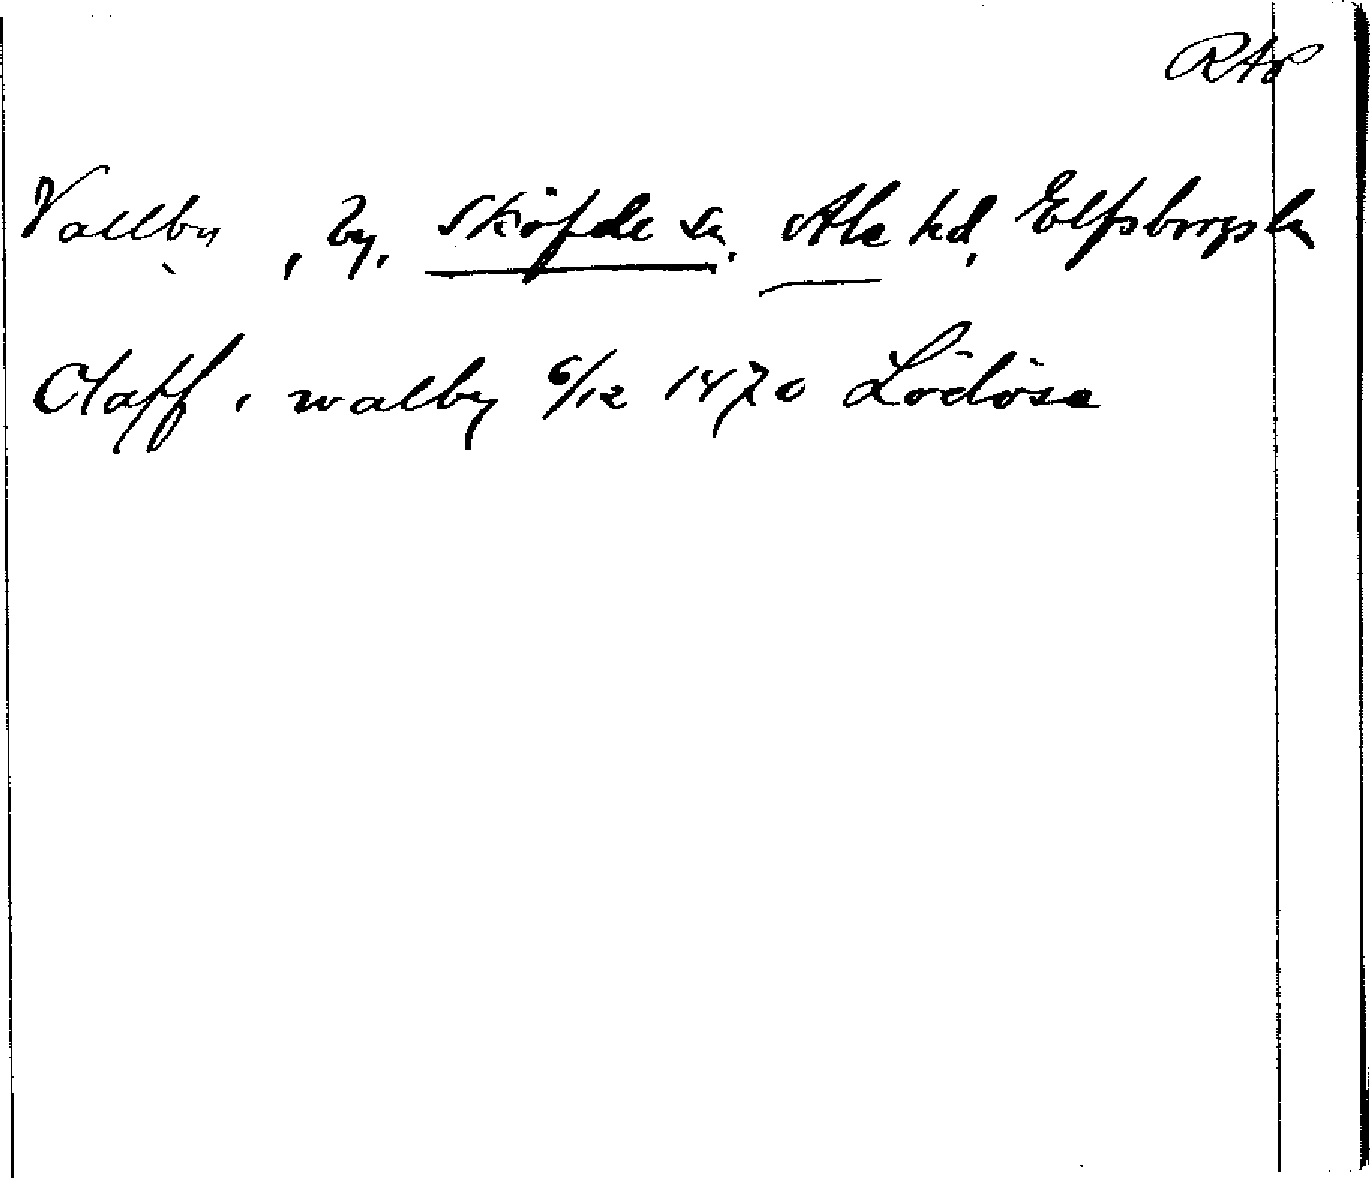 RAP
Vallby, by, Sköfde sn, Ale hd, Elfsborgs ln
Claff i walby 6/12 1470 Lödöse